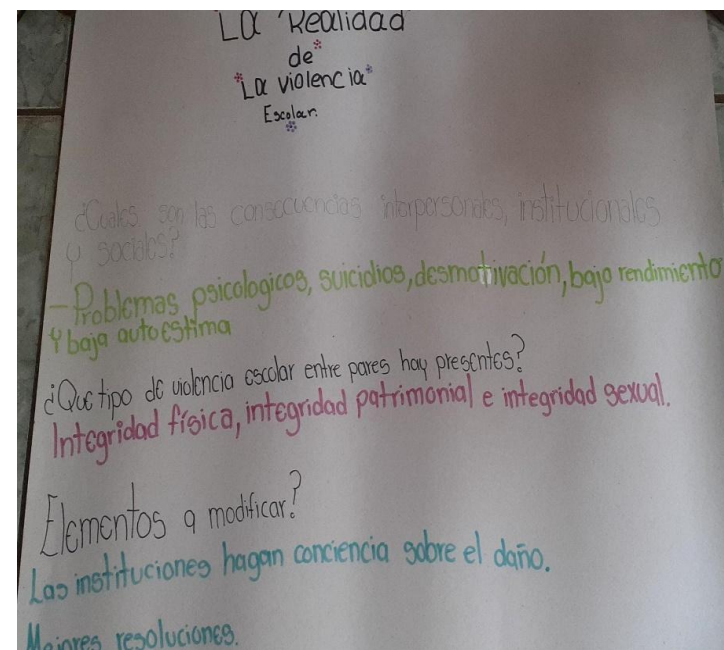 La Realidad
de
La violencia
Escolar.
¿Cuales son las consecuencias interpersonales, institucionales
y sociales?
- Problemas psicologicos, suicidios, desmotivación, bajo rendimiento
y baja autoestima
¿Que tipo de violencia escolar entre pares hay presentes?
Integridad física, integridad patrimonial e integridad sexual.
Elementos a modificar?
Las instituciones hagan conciencia sobre el daño.
Mejores resoluciones.